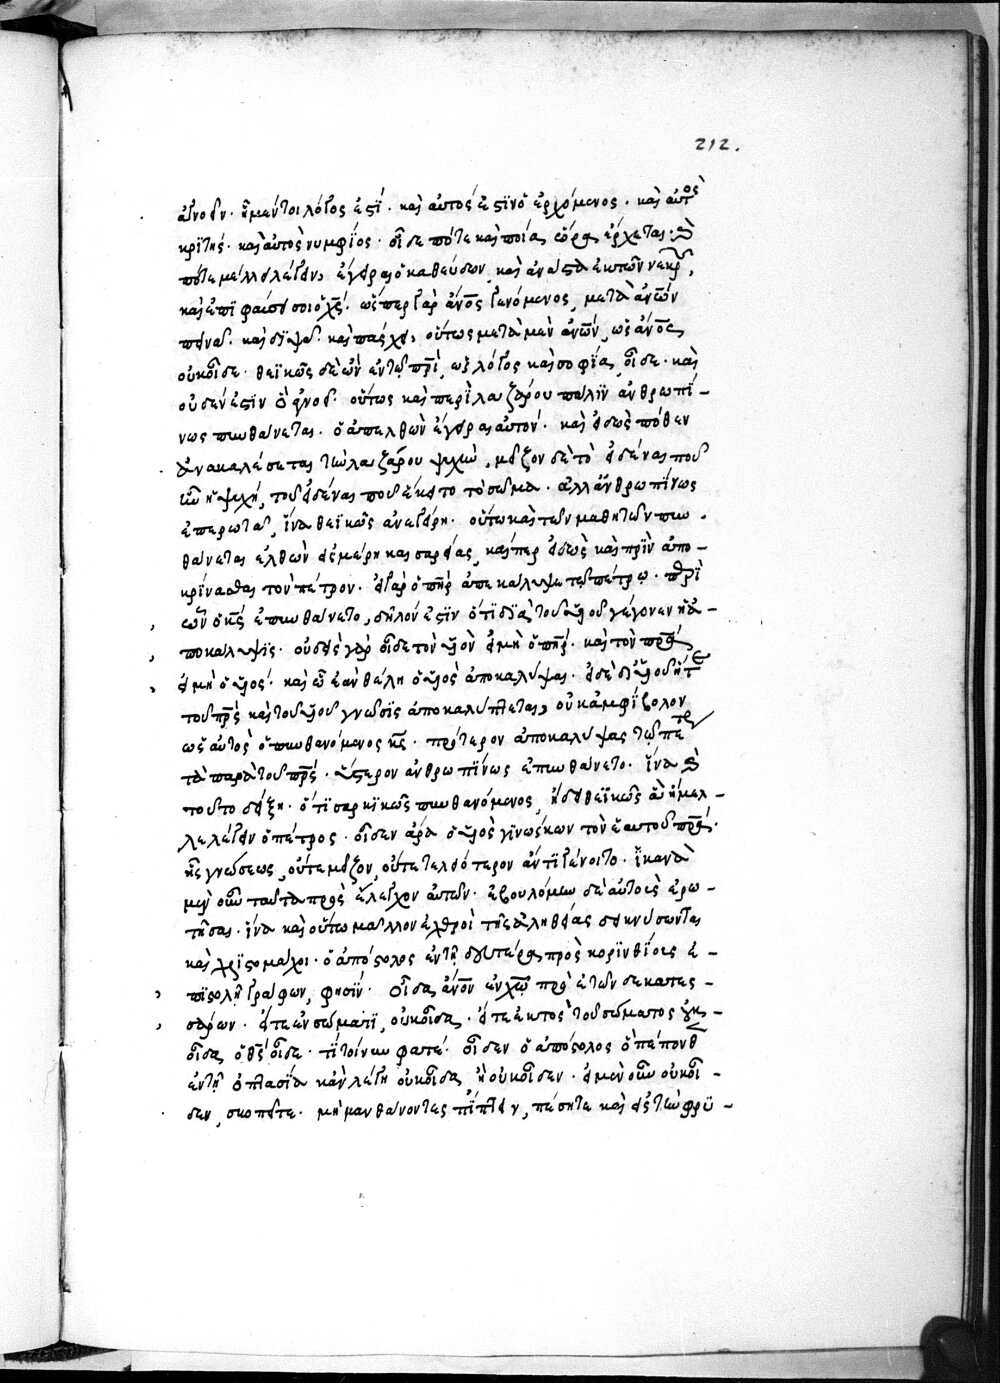 ἀγνοεῖν· εἰ μέντοι λόγος ἐστί· καὶ αὐτός ἐστϊν ὁ ἐρχόμενος· καὶ αὐτὸς
κριτής· καὶ αὐτὸς νυμφίος· οἶδε πότε καὶ ποίᾳ ὥρᾳ ἔρχεται· καὶ
πότε μέλλει λέγειν, ἔγειραι ὁ καθεύδων, καὶ ἀνάστα ἐκ τῶν νεκρῶν,
καὶ ἐπϊφαύσει σοι ὁ χς· ὥσπερ γὰρ ἄνος γενόμενος, μετὰ ἀνων
πεινᾶ· καὶ διψᾶ· καὶ πάσχει, οὕτως μετὰ μὲν ἀνων, ὡς ἄνος
οὐκ οἶδε· θεϊκῶς δὲ ὢν ἐν τῷ πρι, ὡς λόγος καὶ σοφία, οἶδε· καὶ
οὐδέν ἐστιν ὃ ἀγνοεῖ· οὕτως καὶ περὶ λαζάρου πάλϊν ἀνθρωπί-
νως πυνθάνεται· ὁ ἀπελθὼν ἐγεῖραι αὐτόν· καὶ εἰδὼς πόθεν
ἀνακαλέσεται τὴν λαζάρου ψυχὴν, μεῖζον δὲ τὸ εἰδέναι ποῦ
ἦν ἡ ψυχή, τοῦ εἰδέναι ποῦ ἔκειτο τὸ σῶμα· ἀλλ ἀνθρωπίνως
ἐπερωτᾶ, ἵνα θεϊκῶς ἀνεγείρη· οὕτω καὶ τῶν μαθητῶν πυν-
θάνεται ἐλθὼν εἰς μέρη καισαρείας, καίπερ εἰδὼς καὶ πρὶν ἀπο-
κρίνασθαι τὸν πέτρον· εἰ γὰρ ὁ πηρ ἀπεκάλυψε τῷ πέτρῳ· περὶ
ὧν ὁ κς ἐπυνθάνετο, δῆλόν ἐστϊν ὅτι δϊὰ τοῦ υἱοῦ γέγονεν ἡ ἀ-
ποκάλυψϊς· οὐδεὶς γὰρ οἶδε τὸν υἱὸν εἰ μὴ ὁ πηρ· καὶ τὸν πρα,
εἰ μὴ ὁ υἱός· καὶ ᾧ ἐὰν θέλη ὁ υἱὸς ἀποκαλύψαι· εἰ δὲ δι υἱοῦ ἥ τε
τοῦ πρς καὶ τοῦ υἱοῦ γνῶσϊς ἀποκαλύπτεται, οὐκ ἀμφίβολον
ὡς αὐτὸς ὁ πυνθανόμενος κς· πρότερον ἀποκαλύψας τῷ πέτρῳ
τὰ παρὰ τοῦ πρς· ὕστερον ἀνθρωπϊνως ἐπυνθάνετο· ἵνα καὶ
τοῦτο δείξη· ὅτι σαρκϊκῶς πυνθανόμενος, ἤδει θεϊκῶς ἃ ἤμελ-
λε λέγειν ὁ πέτρος· οἶδεν ἄρα ὁ υἱὸς γϊνώσκων τὸν ἑαυτοῦ πρα·
ἧς γνώσεως, οὔτε μεῖζον, οὔτε τελειότερον ἄν τϊ γένοιτο· ἱκανὰ
μὲν οὖν ταῦτα πρὸς ἔλεγχον αὐτῶν· ἐβουλόμην δὲ αὐτοὺς ἐρω-
τῆσαι· ἵνα καὶ οὕτω μᾶλλον ἐχθροὶ τῆς ἀληθείας δεικνύωνται
καὶ χριστομάχοι· ὁ ἀπόστολος ἐν τῇ δευτέρᾳ πρὸς κορϊνθίους ἐ-
πϊστολῇ γράφων, φησίν· οἶδα ἄνον ἐν χω πρὸ ἐτῶν δεκατεσ-
σάρων· εἴτε ἐν σώματϊ, οὐκ οἶδα· εἴτε ἐκτὸς τοῦ σώματος οὐκ
οἶδα, ὁ θς οἶδε· τί τοίνυν φατέ· οἶδεν ὁ ἀπόστολος ὃ πέπονθεν
ἐν τῇ ὀπτασίᾳ κἂν λέγη οὐκ οἶδα, ἢ οὐκ οἶδεν· εἰ μὲν οὖν οὐκ οἶ-
δεν, σκοπεῖτε· μὴ μανθάνοντες πίπτειν, πέσητε καὶ εἰς τὴν φρϋ-